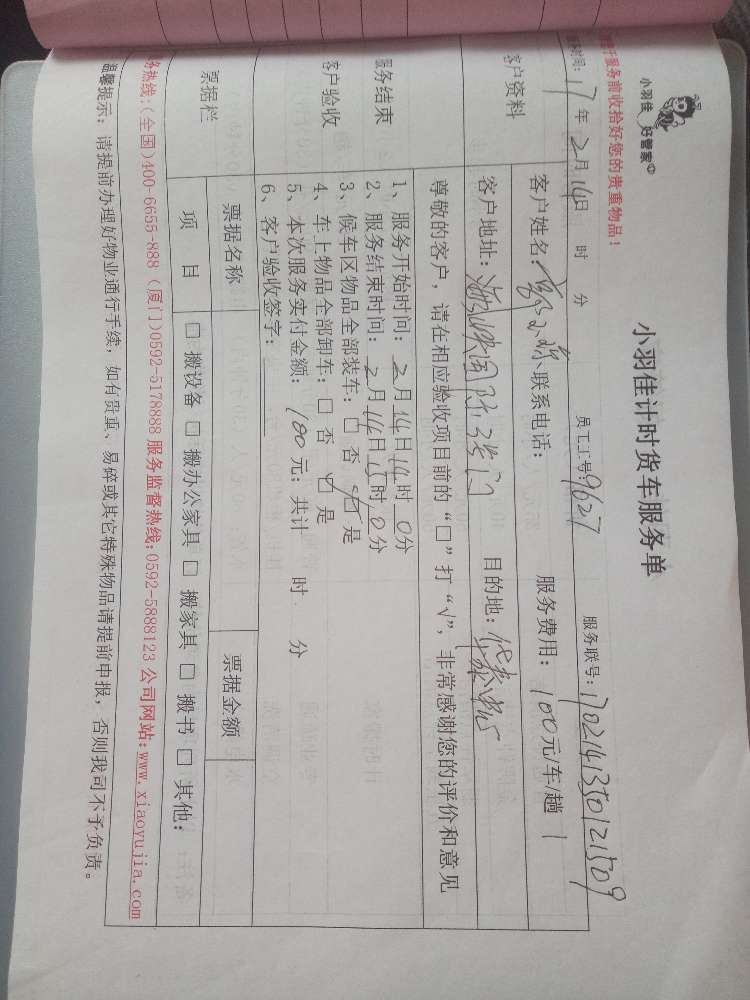 小羽佳 好管家
小羽佳计时货车服务单
服务前收拾好您的贵重物品！
时间：17年2月14日 时 分 员工工号：9627 服务联号：1702141350121509
客户资料
客户姓名： 小 联系电话： 服务费用：100元/车/趟 1
客户地址： 目的地：
服务结束
客户验收
尊敬的客户，请在相应验收项目前的“□”打“√”，非常感谢您的评价和意见
1、服务开始时间：2月14日14时0分
2、服务结束时间：2月14日15时0分
3、候车区物品全部装车：□ 否 ☑ 是
4、车上物品全部卸车：□ 否 ☑ 是
5、本次服务实付金额：100元；共计 时 分
6、客户验收签字：
票据栏
票据名称 票据金额
项 目 □ 搬设备 □ 搬办公家具 □ 搬家具 □ 搬书 □ 其他：
务热线：(全国)400-6655-888 (厦门)0592-5178888 服务监督热线：0592-5888123 公司网站：www.xiaoyujia.com
温馨提示：请提前办理好物业通行手续，如有贵重、易碎或其它特殊物品请提前申报，否则我司不予负责。